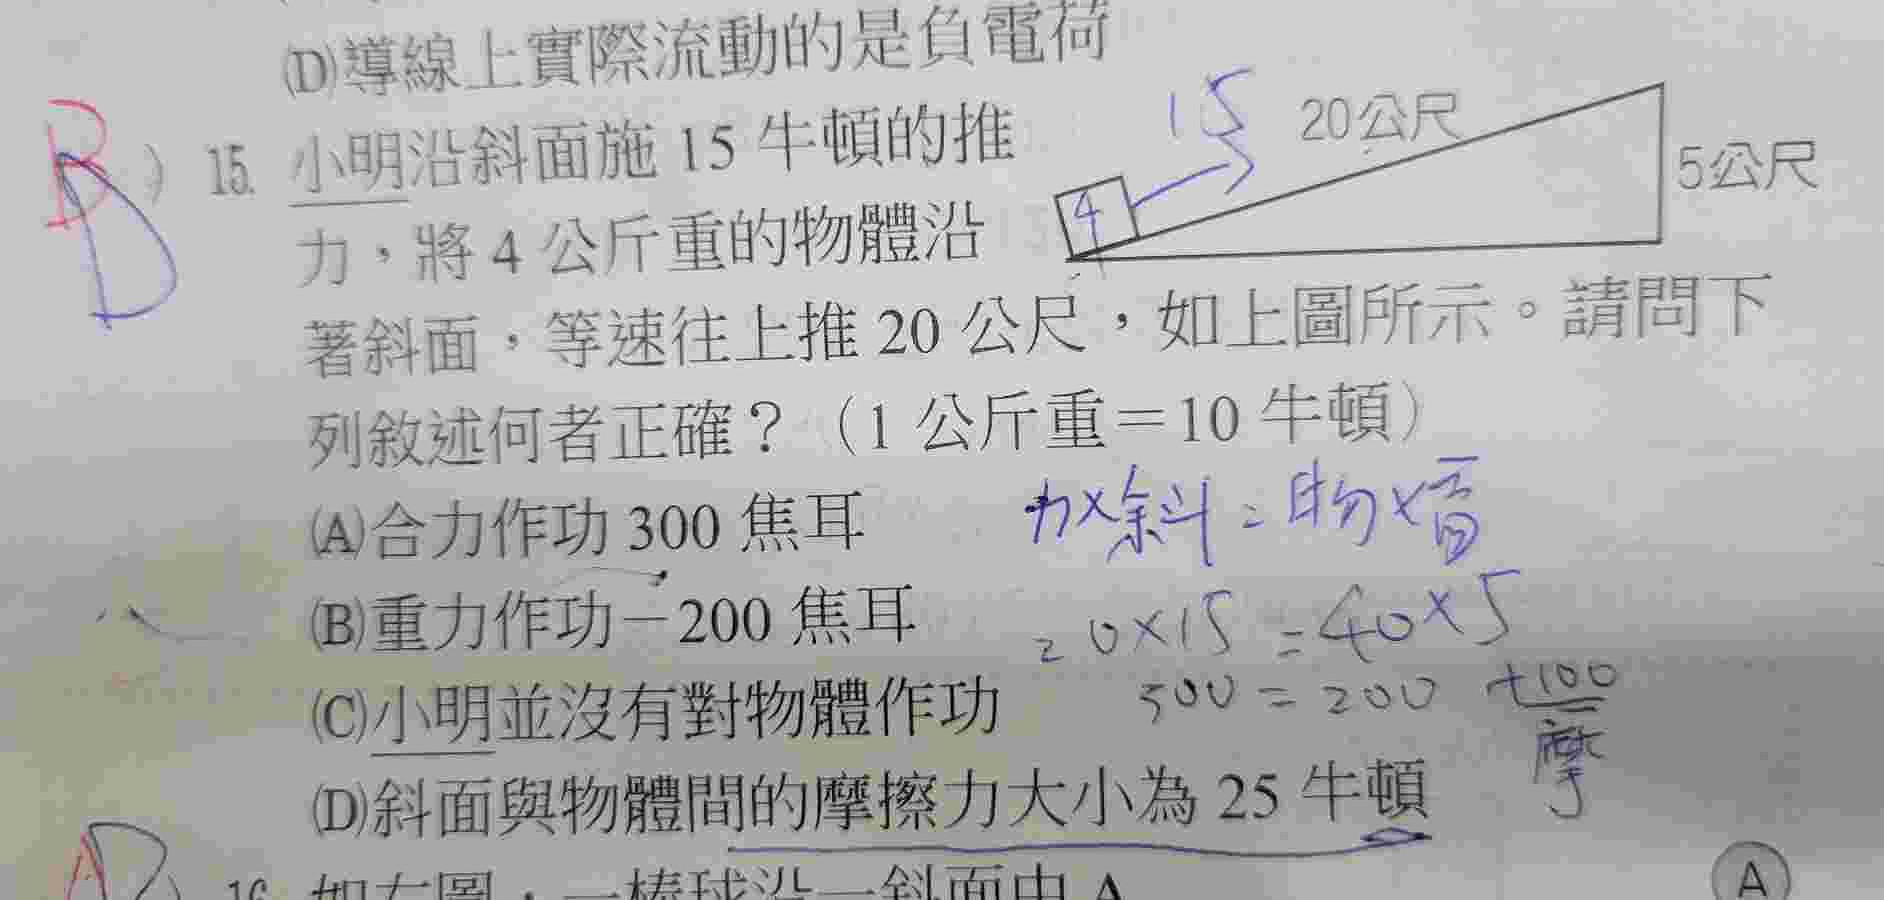 (D)導線上實際流動的是負電荷
B D ) 15. 小明沿斜面施 15 牛頓的推
15 20公尺
4 5公尺
力，將 4 公斤重的物體沿
著斜面，等速往上推 20 公尺，如上圖所示。請問下
列敘述何者正確？（1 公斤重＝10 牛頓）
(A)合力作功 300 焦耳
力×斜=物×高
(B)重力作功－200 焦耳
20×15=40×5
(C)小明並沒有對物體作功
300=200 +100
摩
(D)斜面與物體間的摩擦力大小為 25 牛頓
A ) 16. 如右圖，一棒球沿一斜面由 A
A